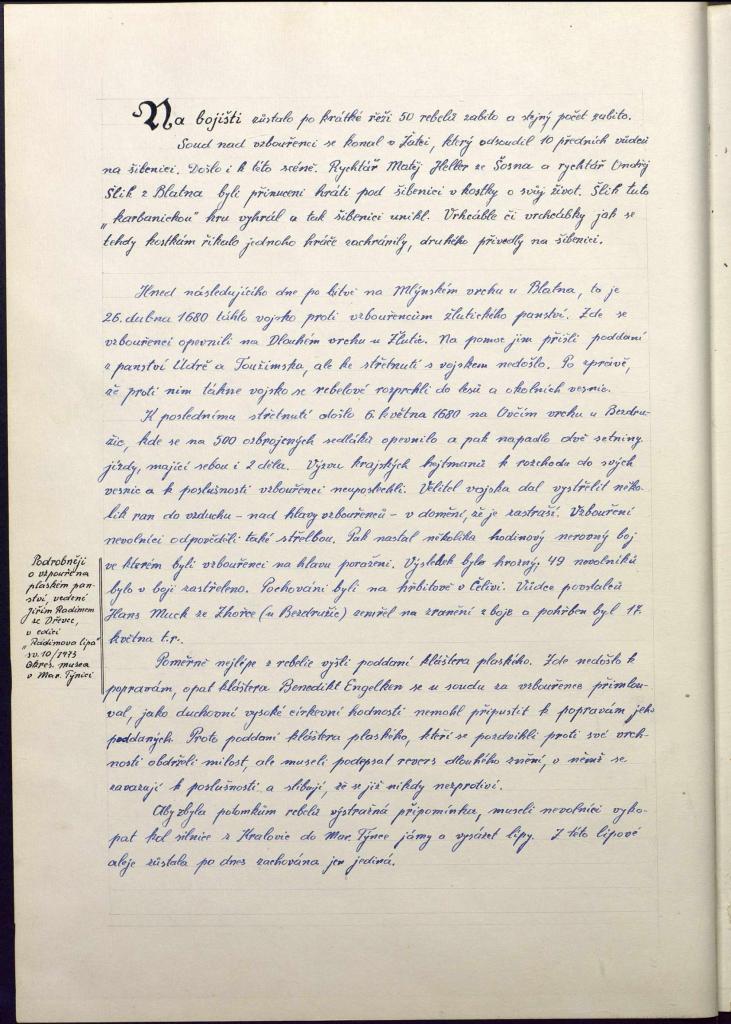 Na bojišti zůstalo po krátké řeži 50 rebelů zabito a stejný počet zabito.
Soud nad vzbouřenci se konal v Žatci, který odsoudil 10 předních vůdců
na šibenici. Došlo i k této scéně. Rychtář Matěj Heller ze Šosna a rychtář Ondřej
Šlik z Blatna byli přinuceni hráti pod šibenicí v kostky o svůj život. Šlik tuto
„karbanickou" hru vyhrál a tak šibenici unikl. Vrhcáble či vrchcábky jak se
tehdy kostkám říkalo jednoho hráče zachránily, druhého přivedly na šibenici.
Hned následujícího dne po bitvě na Mlýnském vrchu u Blatna, to je
26. dubna 1680 táhlo vojsko proti vzbouřencům žlutického panství. Zde se
vzbouřenci opevnili na Dlouhém vrchu u Žlutic. Na pomoc jim přišli poddaní
z panství Údrč a Toužimska, ale ke střetnutí s vojskem nedošlo. Po zprávě,
že proti nim táhne vojsko se rebelové rozprchli do lesů a okolních vesnic.
K poslednímu střetnutí došlo 6. května 1680 na Ovčím vrchu u Bezdru-
žic, kde se na 500 ozbrojených sedláků opevnilo a pak napadlo dvě setniny
jízdy, mající sebou i 2 děla. Výzvu krajských hejtmanů k rozchodu do svých
vesnic a k poslušnosti vzbouřenci neuposlechli. Velitel vojska dal vystřelit něko-
lik ran do vzduchu – nad hlavy vzbouřenců – v domění, že je zastraší. Vzbouření
nevolníci odpověděli také střelbou. Pak nastal několika hodinový nerovný boj
ve kterém byli vzbouřenci na hlavu poraženi. Výsledek byl hrozný, 49 nevolníků
bylo v boji zastřeleno. Pochováni byli na hřbitově v Čelivi. Vůdce povstalců
Hans Muck ze Zhořce (u Bezdružic) zemřel na zranění z boje a pohřben byl 17.
května t.r.
Podrobněji
o vzpouře na
plaském pan-
ství, vedení
Jiřím Radimem
ze Dřevec,
v edici
„Radimova lípa"
sv. 10/1973
Okres. musea
v Mar. Týnici
Poměrně nejlépe z rebelie vyšli poddaní kláštera plaského. Zde nedošlo k
popravám, opat kláštera Benedikt Engelken se u soudu za vzbouřence přimlou-
val, jako duchovní vysoké církevní hodnosti nemohl připustit k popravám jeho
poddaných. Proto poddaní kláštera plaského, kteří se pozdvihli proti své vrch-
nosti obdrželi milost, ale museli podepsat revers dlouhého znění, v němž se
zavazují k poslušnosti a slibují, že se již nikdy nezprotiví.
Aby zbyla potomkům rebelů výstražná připomínka, museli nevolníci vyko-
pat kol silnice z Kralovic do Mar. Týnce jámy a vysázet lípy. Z této lipové
aleje zůstala po dnes zachována jen jediná.